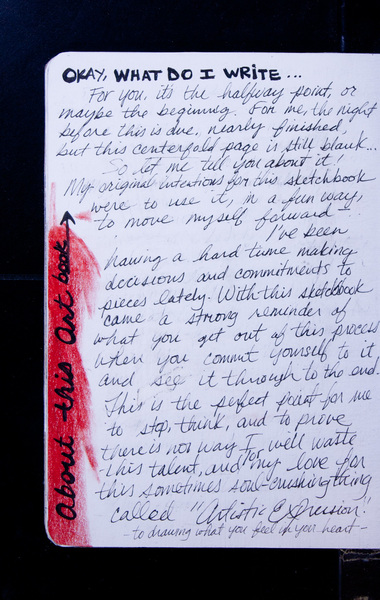 OKAY, WHAT DO I WRITE...
For you, it's the halfway point, or
maybe the beginning. For me, the night
before this is due, nearly finished,
but this centerfold page is still blank...
So let me tell you about it!
My original intentions for this sketchbook
were to use it, in a fun way,
to move myself forward -
I've been
having a hard time making
decisions and commitments to
pieces lately. With this sketchbook
came a strong reminder of
what you get out of this process
when you commit yourself to it,
and see it through to the end.
This is the perfect point for me
to stop, think, and to prove
there is not way I will waste
this talent, and my love for
this sometimes soul-crushing thing
called "Artistic Expression!"
- to drawing what you feel in your heart -
About this Art book